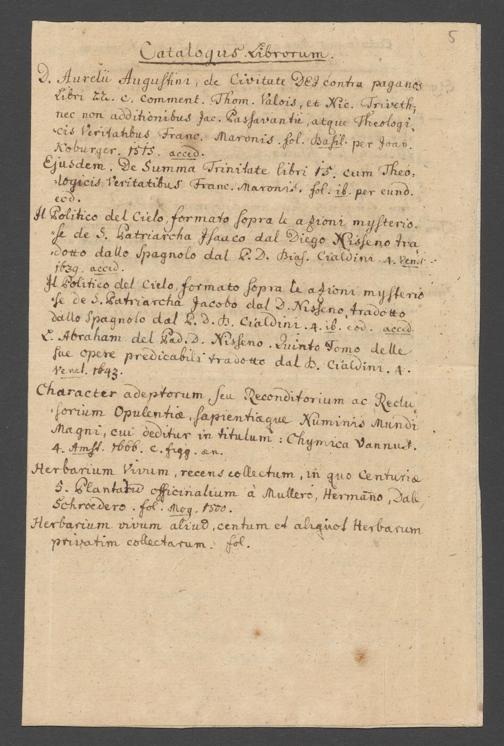 5
Catalogus Librorum.
D. Aurelii Augustini, de Civitate DEI contra paganos
Libri 22. c. comment. Thom. Valois, et Nic. Triveth,
nec non additionibus Jac. Passavantii, atque Theologi-
cis Veritatibus Franc. Maronis. fol. Basil. per Joan.
Koburger. 1515. acced.
Ejusdem. De Summa Trinitate libri 15. cum Theo-
logicis Veritatibus Franc. Maronis. fol. ib. per eund.
eod.
Il Politico del Cielo, formato sopra le azioni mysterio-
se de S. Patriarcha Isauco dal Diego Nisseno tra-
dotto dallo Spagnolo dal P. D. Bias. Cialdini. 4. Venet.
1639. acced.
Il Politico del Cielo, formato sopra le azioni mysterio-
se de S. Patriarcha Jacobo dal D. Nisseno, tradotto
dallo Spagnolo dal P. D. B. Cialdini. 4. ib. eod. acced
L. Abraham del Pad. D. Nisseno. Quinto Tomo delle
sue opere predicabili tradotto dal B. Cialdini. 4.
Venet. 1643.
Character adeptorum, seu Reconditorium ac Reclu-
sorium Opulentiæ, sapientiæque Numinis Mundi
Magni, cui deditur in titulum: Chymica Vannus.
4. Amst. 1666. c. figg. æn.
Herbarium Vivum, recens collectum, in quo Centuriæ
5. Plantarū officinalium à Mullero, Hermaño, Dale
Schroedero. fol. Mog.
Herbarium vivum aliud, centum et aliquot Herbarum
privatim collectarum. fol.